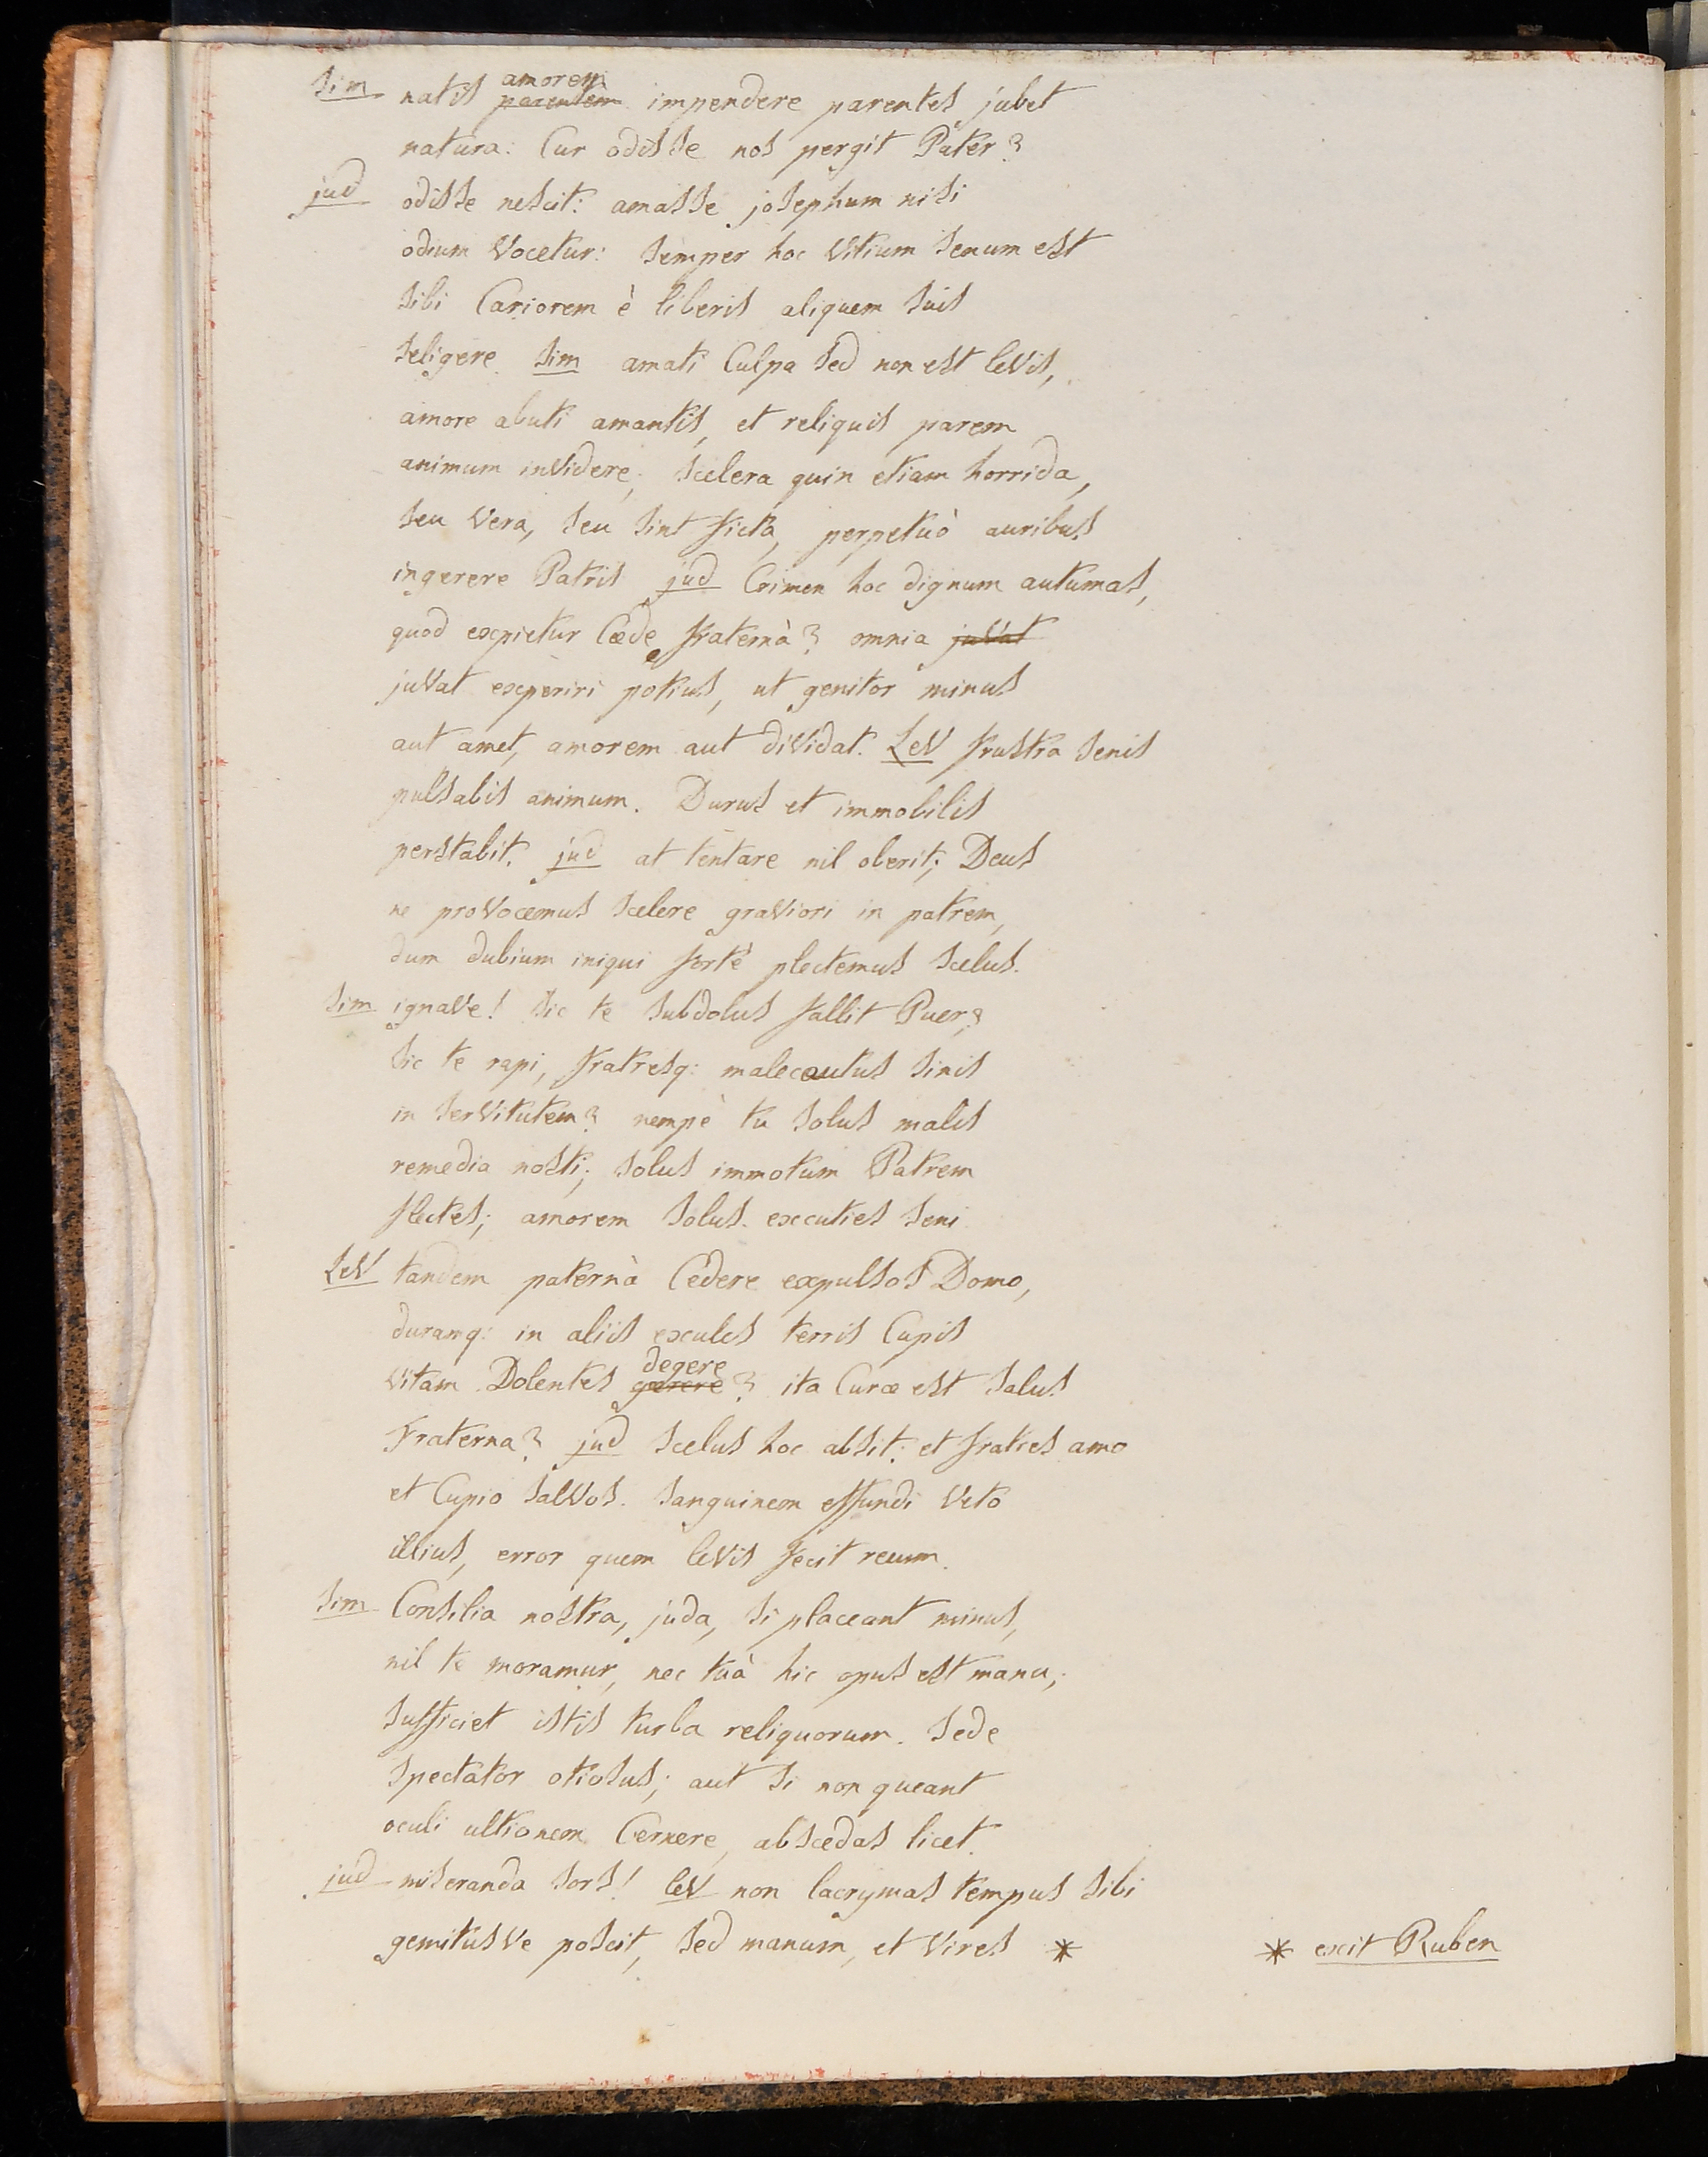 Sim natis amorem parentem impendere parentes jubet
natura: Cur odisse nos pergit Pater?
jud odisse nescit: amasse josephum nisi
odium Vocetur: Semper hoc Vitium Senum est
Sibi Cariorem è liberis aliquem Suis
Seligere. Sim amati Culpa Sed non est leVis,
amore abuti amantis, et reliquis parem
animum inVidere; Scelera quin etiam horrida,
Seu Vera, Seu Sint ficta, perpetuò auribus
ingerere Patris jud Crimen hoc dignum autumas,
quod expietur Cæde fraternâ? omnia juVat
juVat experiri potius, ut genitor minus
aut amet, amorem aut diVidat. LeV frustra Senis
pulsabis animum. Durus et immobilis
perstabit. jud at tentare nil oberit; Deus
ne proVocemus Scelere graViori in patrem,
dum dubium iniqui fortè plectemus Scelus.
Sim ignaVe! Sic te Subdolus fallit Puer?
Sic te rapi, fratresq: malecautus Sinis
in SerVitutem? nempè tu Solus malis
remedia nosti; Solus immotum Patrem
flectes; amorem Solus excuties Seni
LeV tandem paternà Cedere expulsos Domo,
duramq: in aliis exules terris Cupis
Vitam Dolentes degere gerere? ita Curæ est Salus
fraterna? jud Scelus hoc absit: et fratres amo
et Cupio SalVos. Sanguinem effundi Veto
illius, error quem leVis fecit reum.
Sim Consilia nostra, juda, Si placeant minus,
nil te moramur, nec tuà hic opus est manu;
Sufficiet istis turba reliquorum. Sede
Spectator otiosus; aut Si non queant
oculi ultionem Cernere, abscedas licet.
jud miseranda Sors! leV non lacrymas tempus Sibi
gemitusVe poscit, Sed manum, et Vires * * exit Ruben